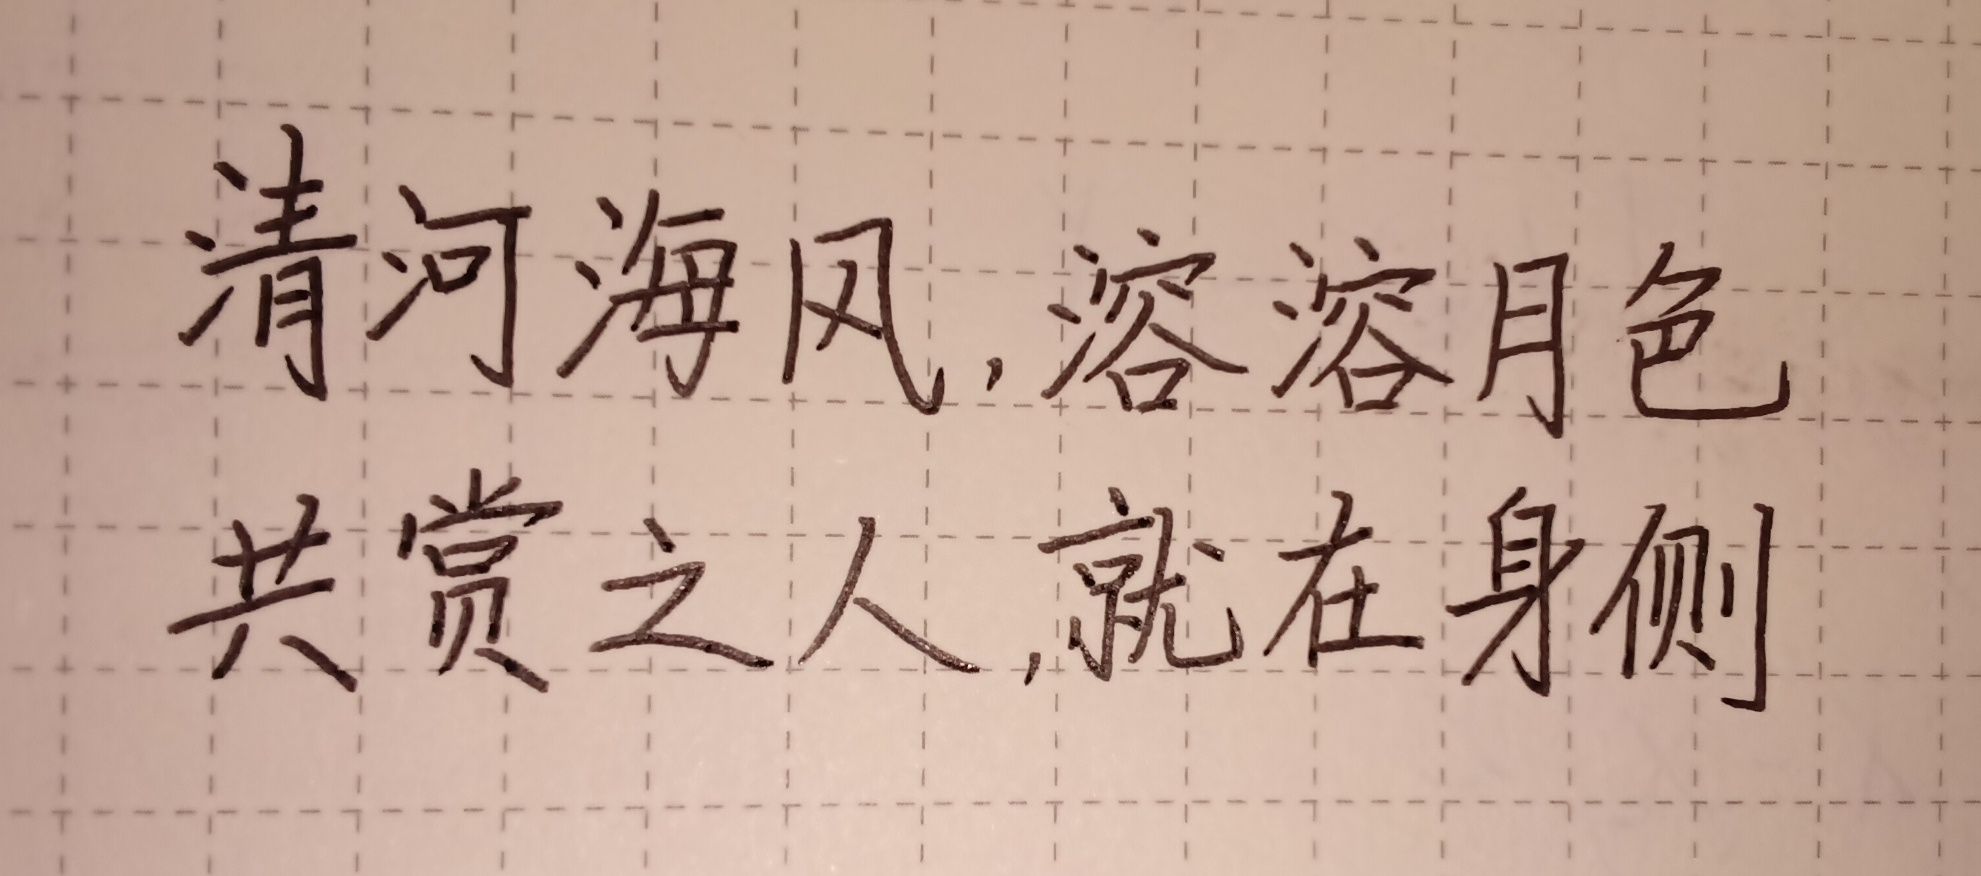 清河海风，溶溶月色
共赏之人，就在身侧